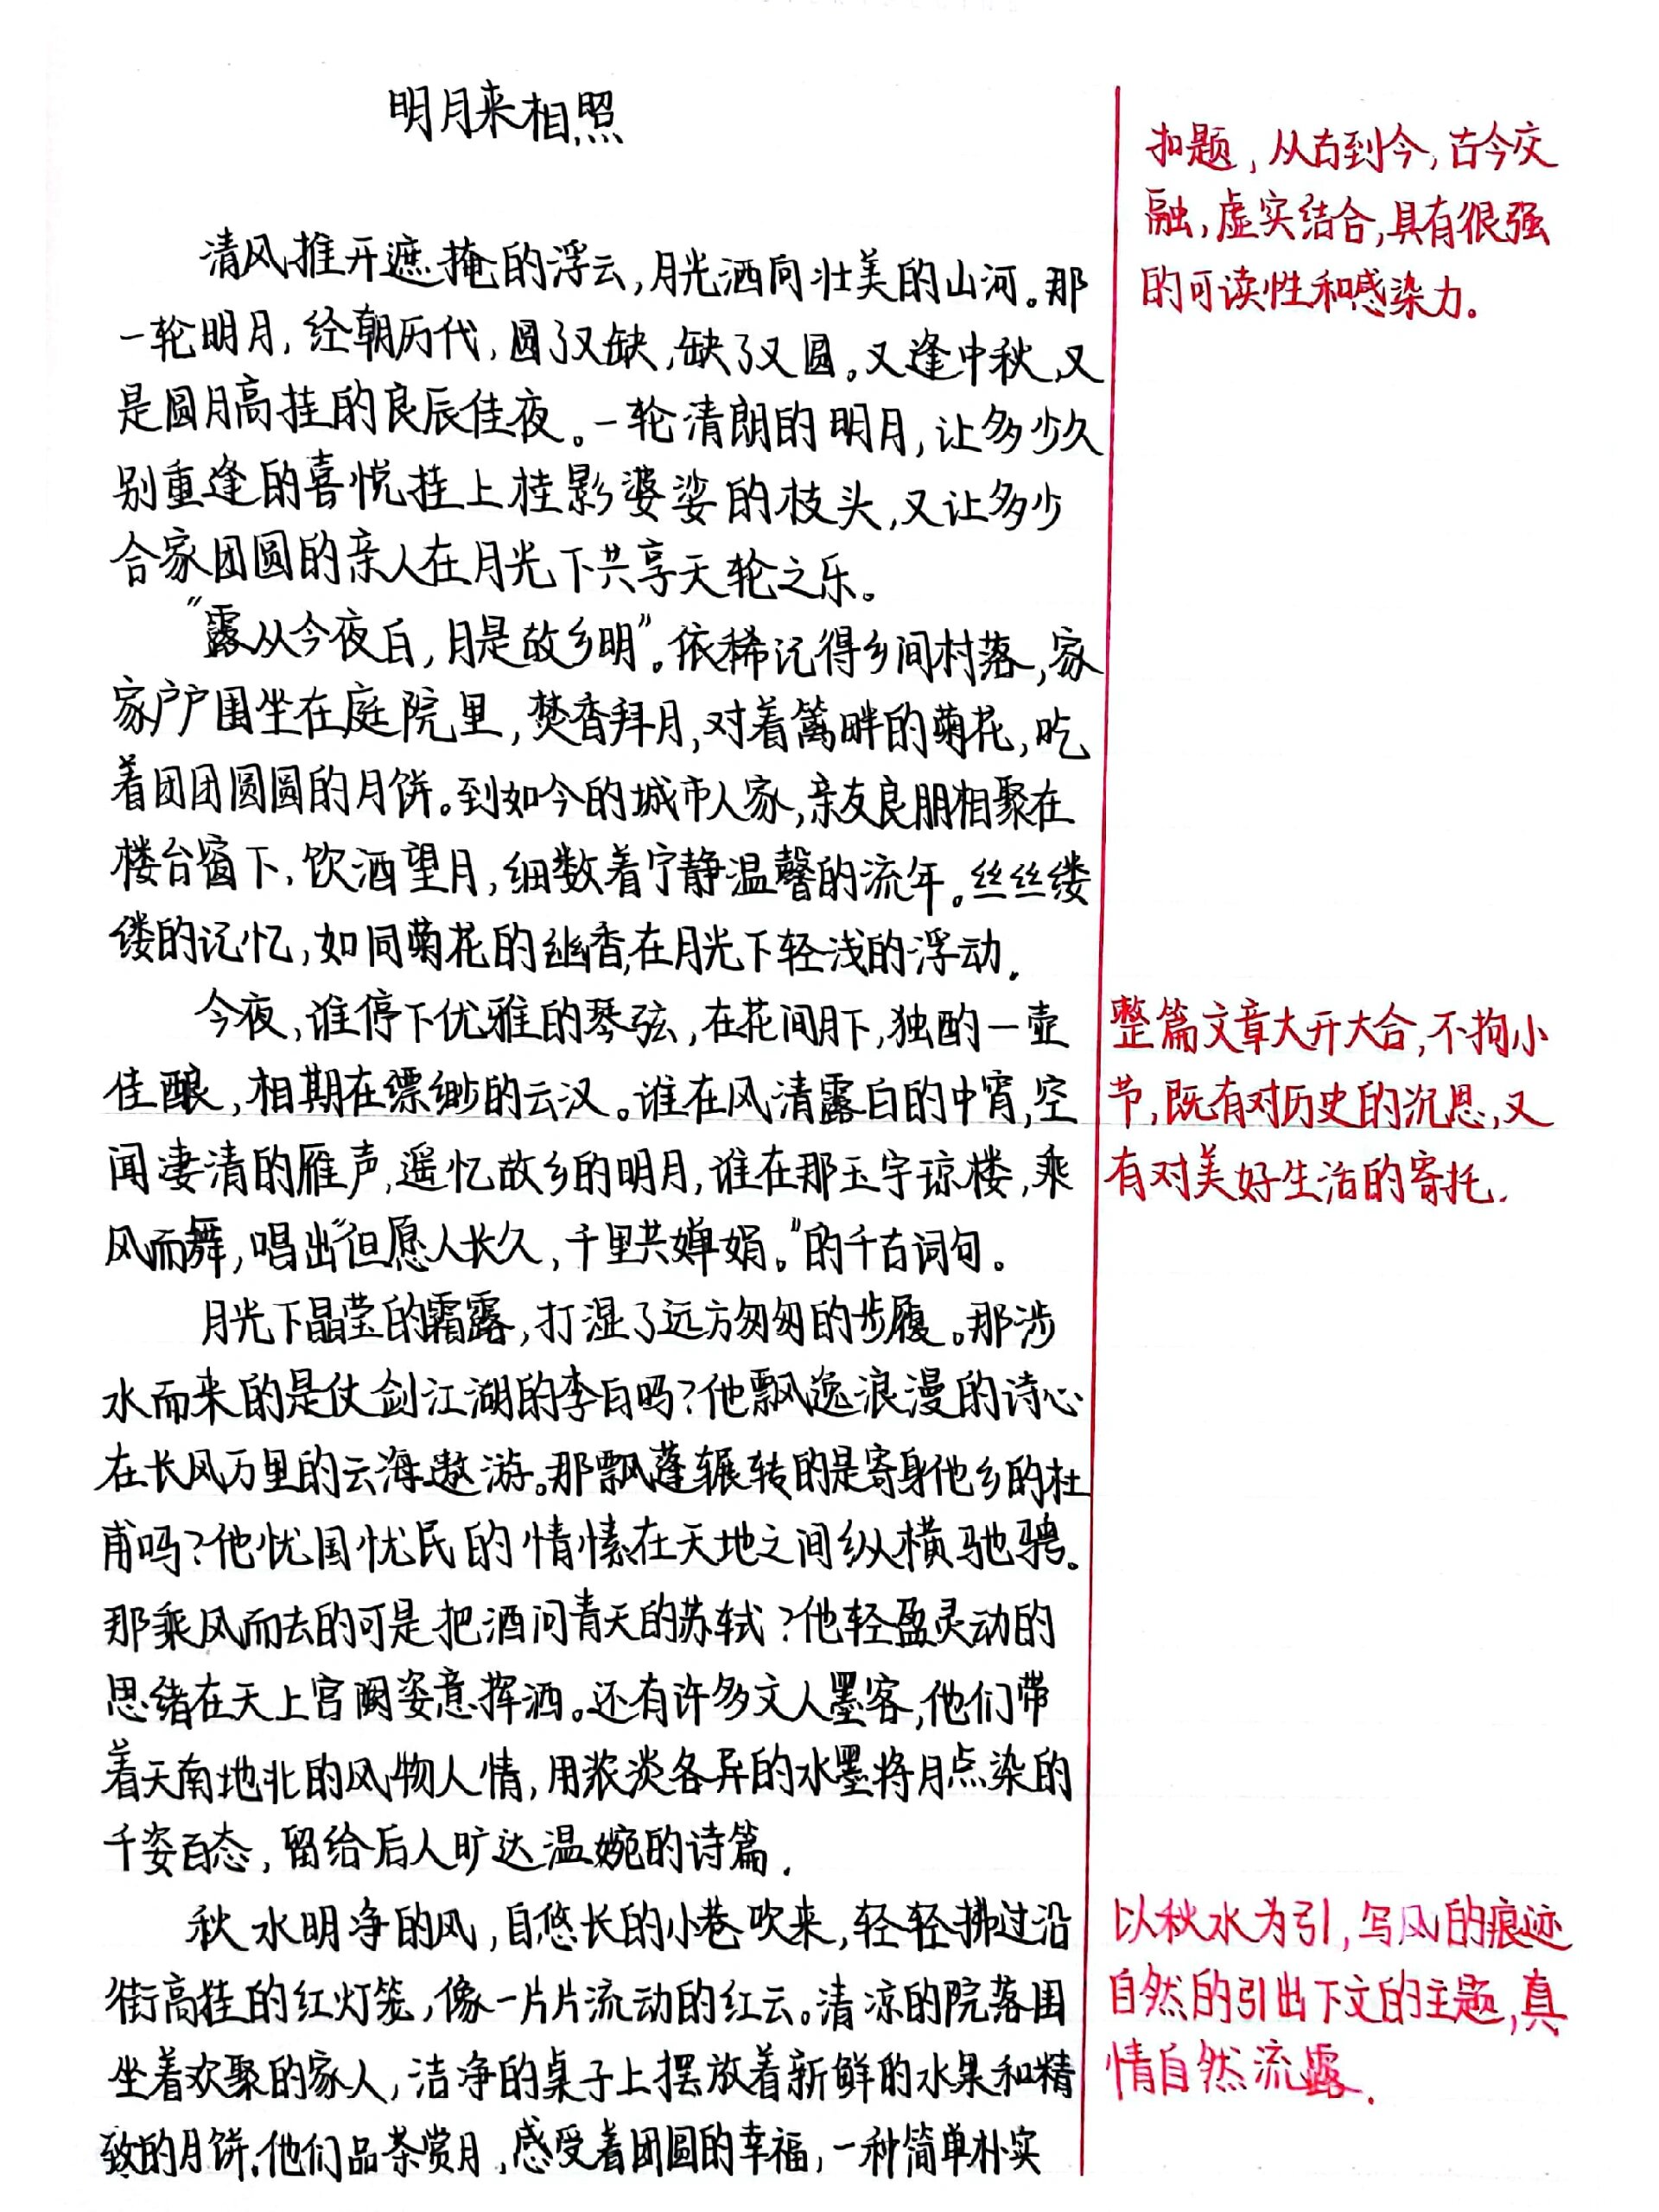 明月来相照
清风推开遮掩的浮云,月光洒向壮美的山河。那
一轮明月,经朝历代,圆了又缺,缺了又圆。又逢中秋,又
是圆月高挂的良辰佳夜。一轮清朗的明月,让多少久
别重逢的喜悦挂上桂影婆娑的枝头,又让多少
合家团圆的亲人在月光下共享天轮之乐。
"露从今夜白,月是故乡明"。依稀记得乡间村落,家
家户户围坐在庭院里,焚香拜月,对着篱畔的菊花,吃
着团团圆圆的月饼。到如今的城市人家,亲友良朋相聚在
楼台窗下,饮酒望月,细数着宁静温馨的流年。丝丝缕
缕的记忆,如同菊花的幽香,在月光下轻浅的浮动.
今夜,谁停下优雅的琴弦,在花间月下,独酌一壶
佳酿,相期在缥缈的云汉。谁在风清露白的中宵,空
闻凄清的雁声,遥忆故乡的明月,谁在那玉宇琼楼,乘
风而舞,唱出"但愿人长久,千里共婵娟。"的千古词句。
月光下晶莹的霜露,打湿了远方匆匆的步履。那涉
水而来的是仗剑江湖的李白吗?他飘逸浪漫的诗心
在长风万里的云海遨游。那飘蓬辗转的是寄身他乡的杜
甫吗?他忧国忧民的情愫在天地之间纵横驰骋。
那乘风而去的可是把酒问青天的苏轼?他轻盈灵动的
思绪在天上宫阙姿意挥洒。还有许多文人墨客,他们带
着天南地北的风物人情,用浓淡各异的水墨将月点染的
千姿百态,留给后人旷达温婉的诗篇.
秋水明净的风,自悠长的小巷吹来,轻轻拂过沿
街高挂的红灯笼,像一片片流动的红云。清凉的院落围
坐着欢聚的家人,洁净的桌子上摆放着新鲜的水果和精
致的月饼.他们品茶赏月,感受着团圆的幸福,一种简单朴实
扣题,从古到今,古今交
融,虚实结合,具有很强
的可读性和感染力。
整篇文章大开大合,不拘小
节,既有对历史的沉思,又
有对美好生活的寄托.
以秋水为引,写风的痕迹
自然的引出下文的主题,真
情自然流露.